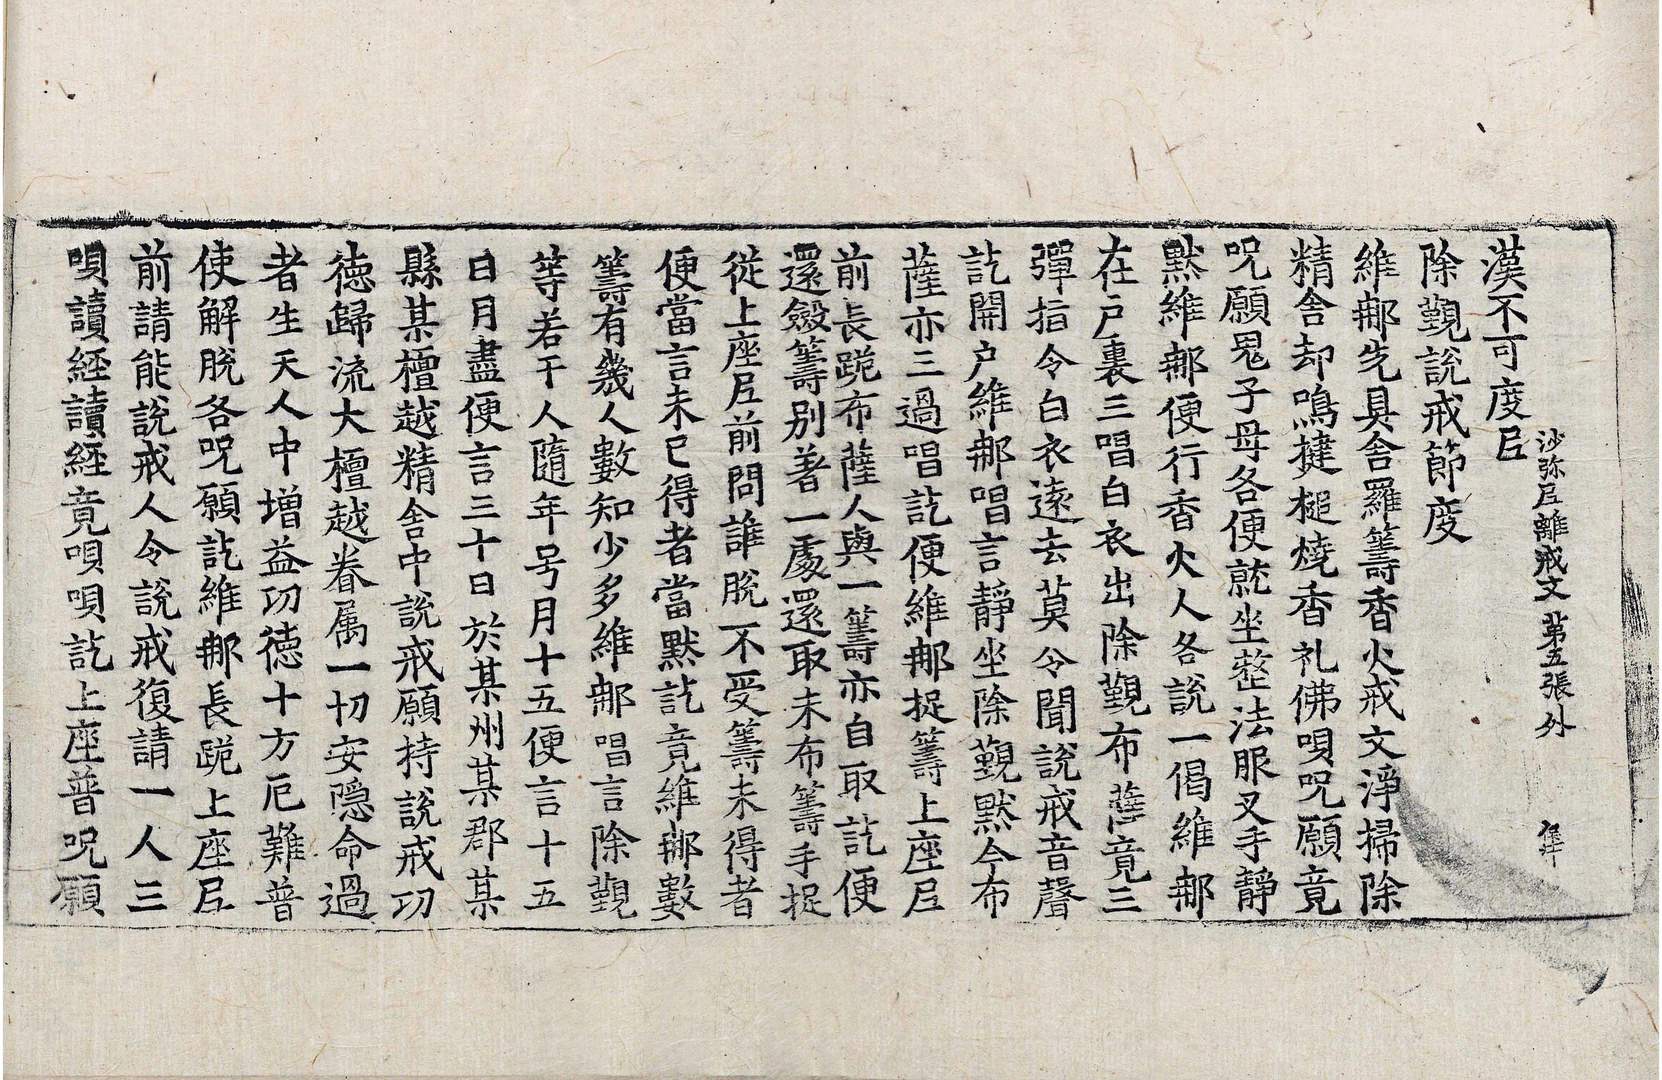 沙弥尼離戒文 第五張 外
漢不可度尼
除覲說戒節度
維那先具舍羅籌香火戒文淨掃除
精舍却鳴揵槌燒香礼佛唄呪願竟
呪願鬼子母各便就坐整法服叉手靜
默維那便行香火人各說一偈維那
在戶裏三唱白衣出除覲布薩竟三
彈指令白衣遠去莫令聞說戒音聲
訖開戶維那唱言靜坐除覲默今布
薩亦三過唱訖便維那捉籌上座尼
前長跪布薩人與一籌亦自取訖便
還斂籌別著一處還取未布籌手捉
從上座尼前問誰脫不受籌未得者
便當言未已得者當默訖竟維那數
籌有幾人數知少多維那唱言除覲
等若干人隨年号月十五便言十五
日月盡便言三十日於某州某郡某
縣某檀越精舍中說戒願持說戒功
德歸流大檀越眷属一切安隱命過
者生天人中增益功德十方厄難普
使解脫各呪願訖維那長跪上座尼
前請能說戒人令說戒復請一人三
唄讀経讀経竟唄唄訖上座普呪願